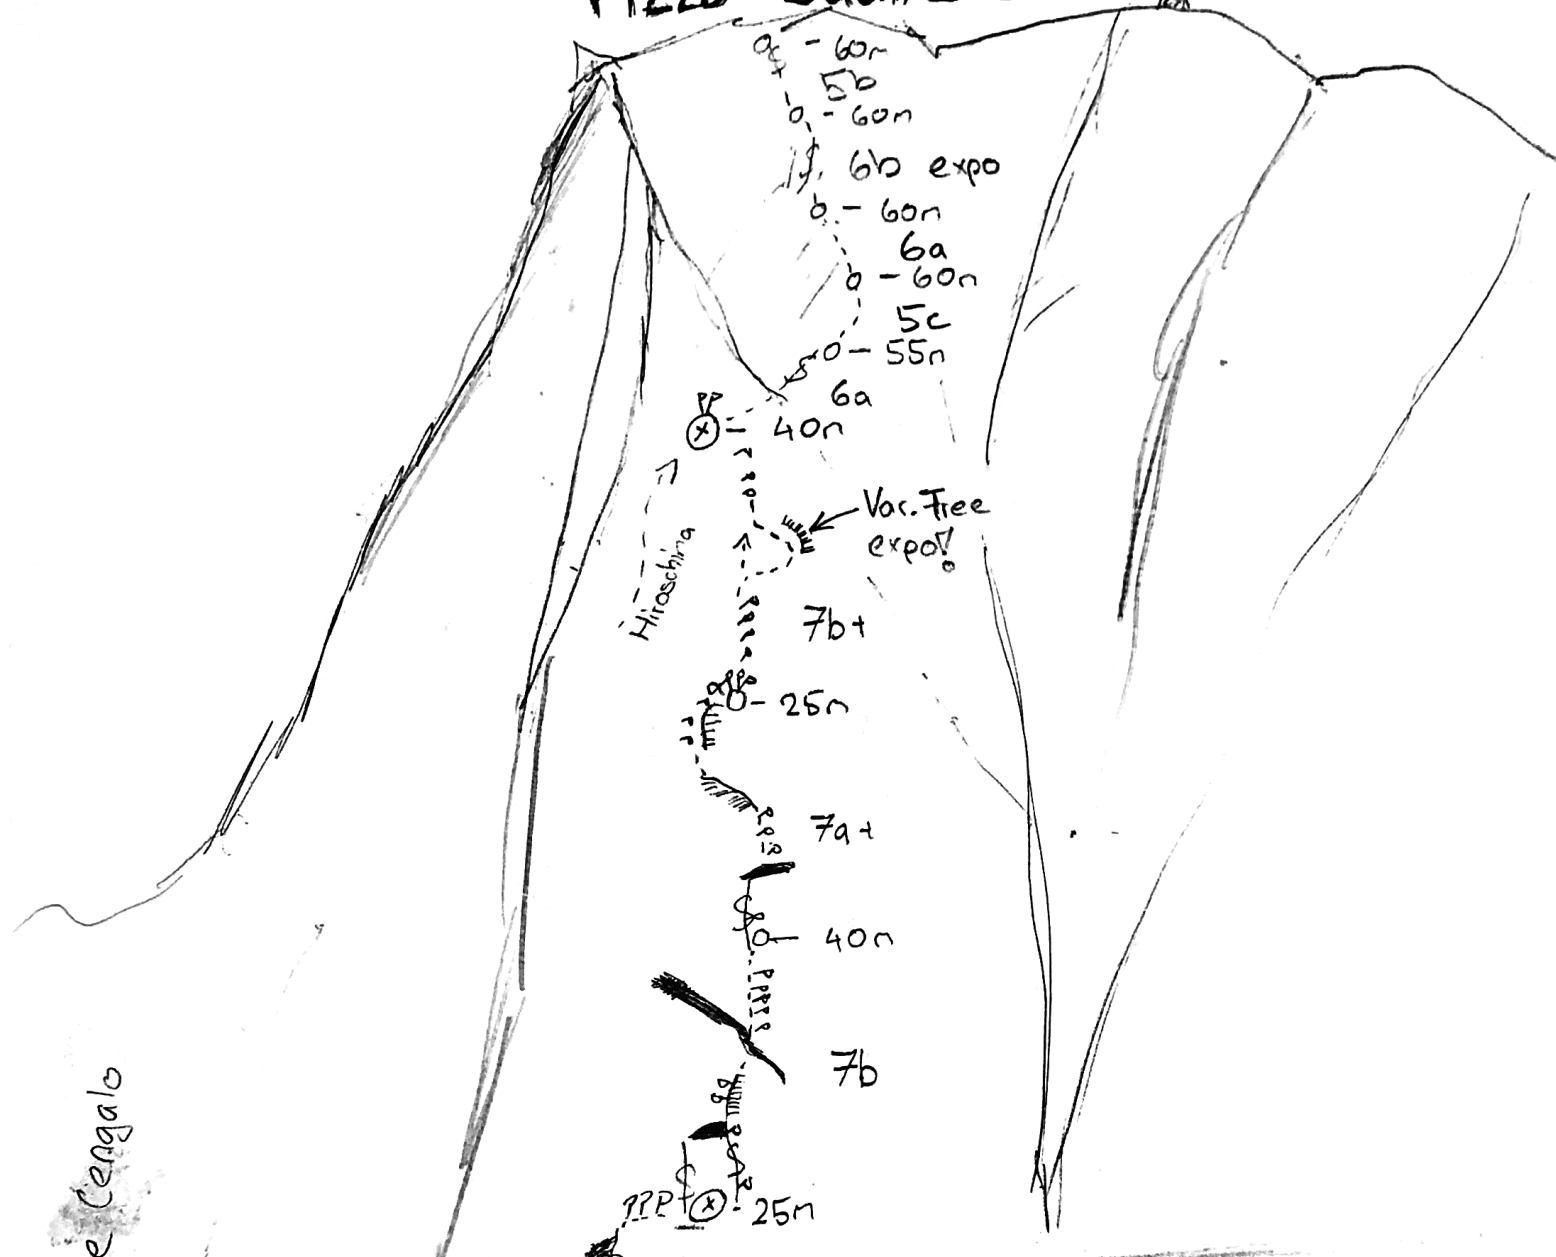 - 60m
5b
- 60m
6b expo
- 60m
6a
- 60m
5c
- 55m
6a
- 40m
Var. Free
expo!
Hiroschina
7b+
- 25m
7a+
- 40m
7b
- 25m
e Cengalo